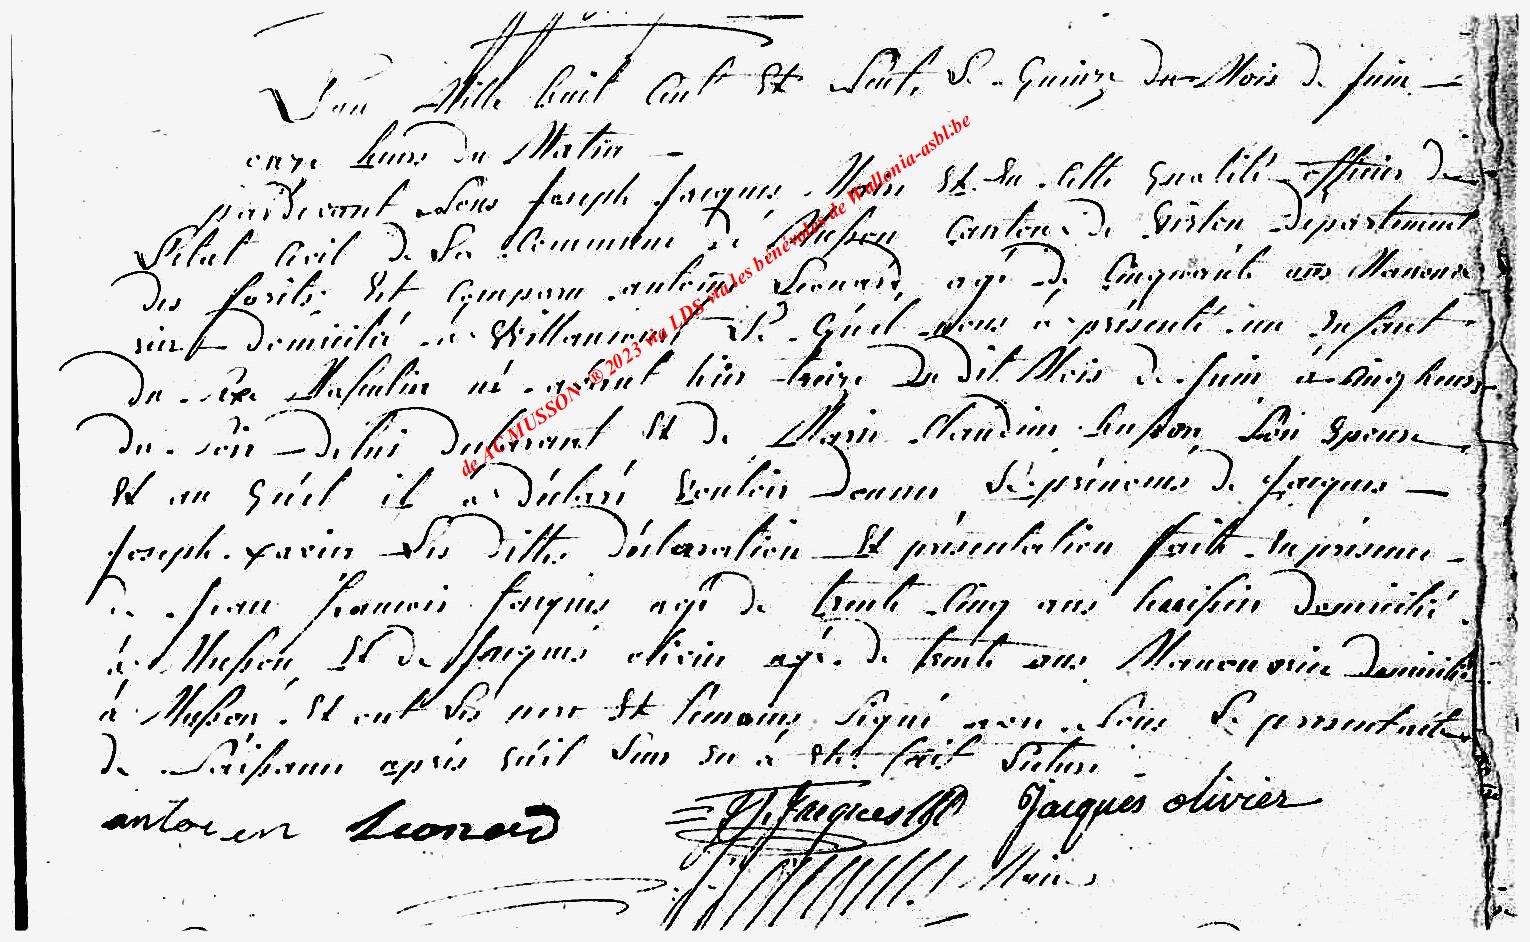 L'an Mille huit Cent Et Sept, Le Quinze du Mois de Juin
onze heurs du Matin
pardevant Nous Joseph Jacques Maire Et En Cette qualité officier de
L'état Civil de La Commune de Musson Canton de Virton département
des forêts Est Comparu antoine Leonard agé de Cinquante ans Manouv
rier domicilié à Willancourt Le Quel nous à présenté un Enfant
du Sexe Masculin né avant hier treize du dit Mois de Juin à Cinq heurs
du Soir de lui déclarant Et de Marie Claudine husson Son Epouse
Et au Quel il à déclaré Vouloir donner Les prénoms de Jacques
Joseph xavier Les dittes déclaration Et présentation faite En présence
de Jean francois Jacques agé de trente Cinq ans domicilié
à Musson Et de Jacques olivier agé de trente ans Manouvrier domicilié
à Musson Et ont Les pere Et temoins Signé avec Nous Le present acte
de Naissance après qu'il Leur En à Eté fait Lecture
antoien Leonard J. Jacques Jacques olivier
Maire
de AC MUSSON ® 2023 via LDS via les bénévoles de Wallonia-asbl.be